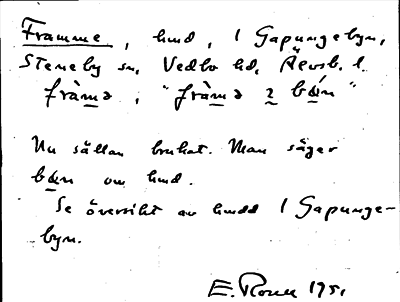 Framme, hmd, i Gapungebyn,
Steneby sn, Vedbo hd, Älvsb. l.
fràmə, "fràmə 2 bán"
Nu sällan brukat. Man säger
bán om hmd.
Se översikt av hmdd i Gapunge-
byn.
E. Rosell 1951